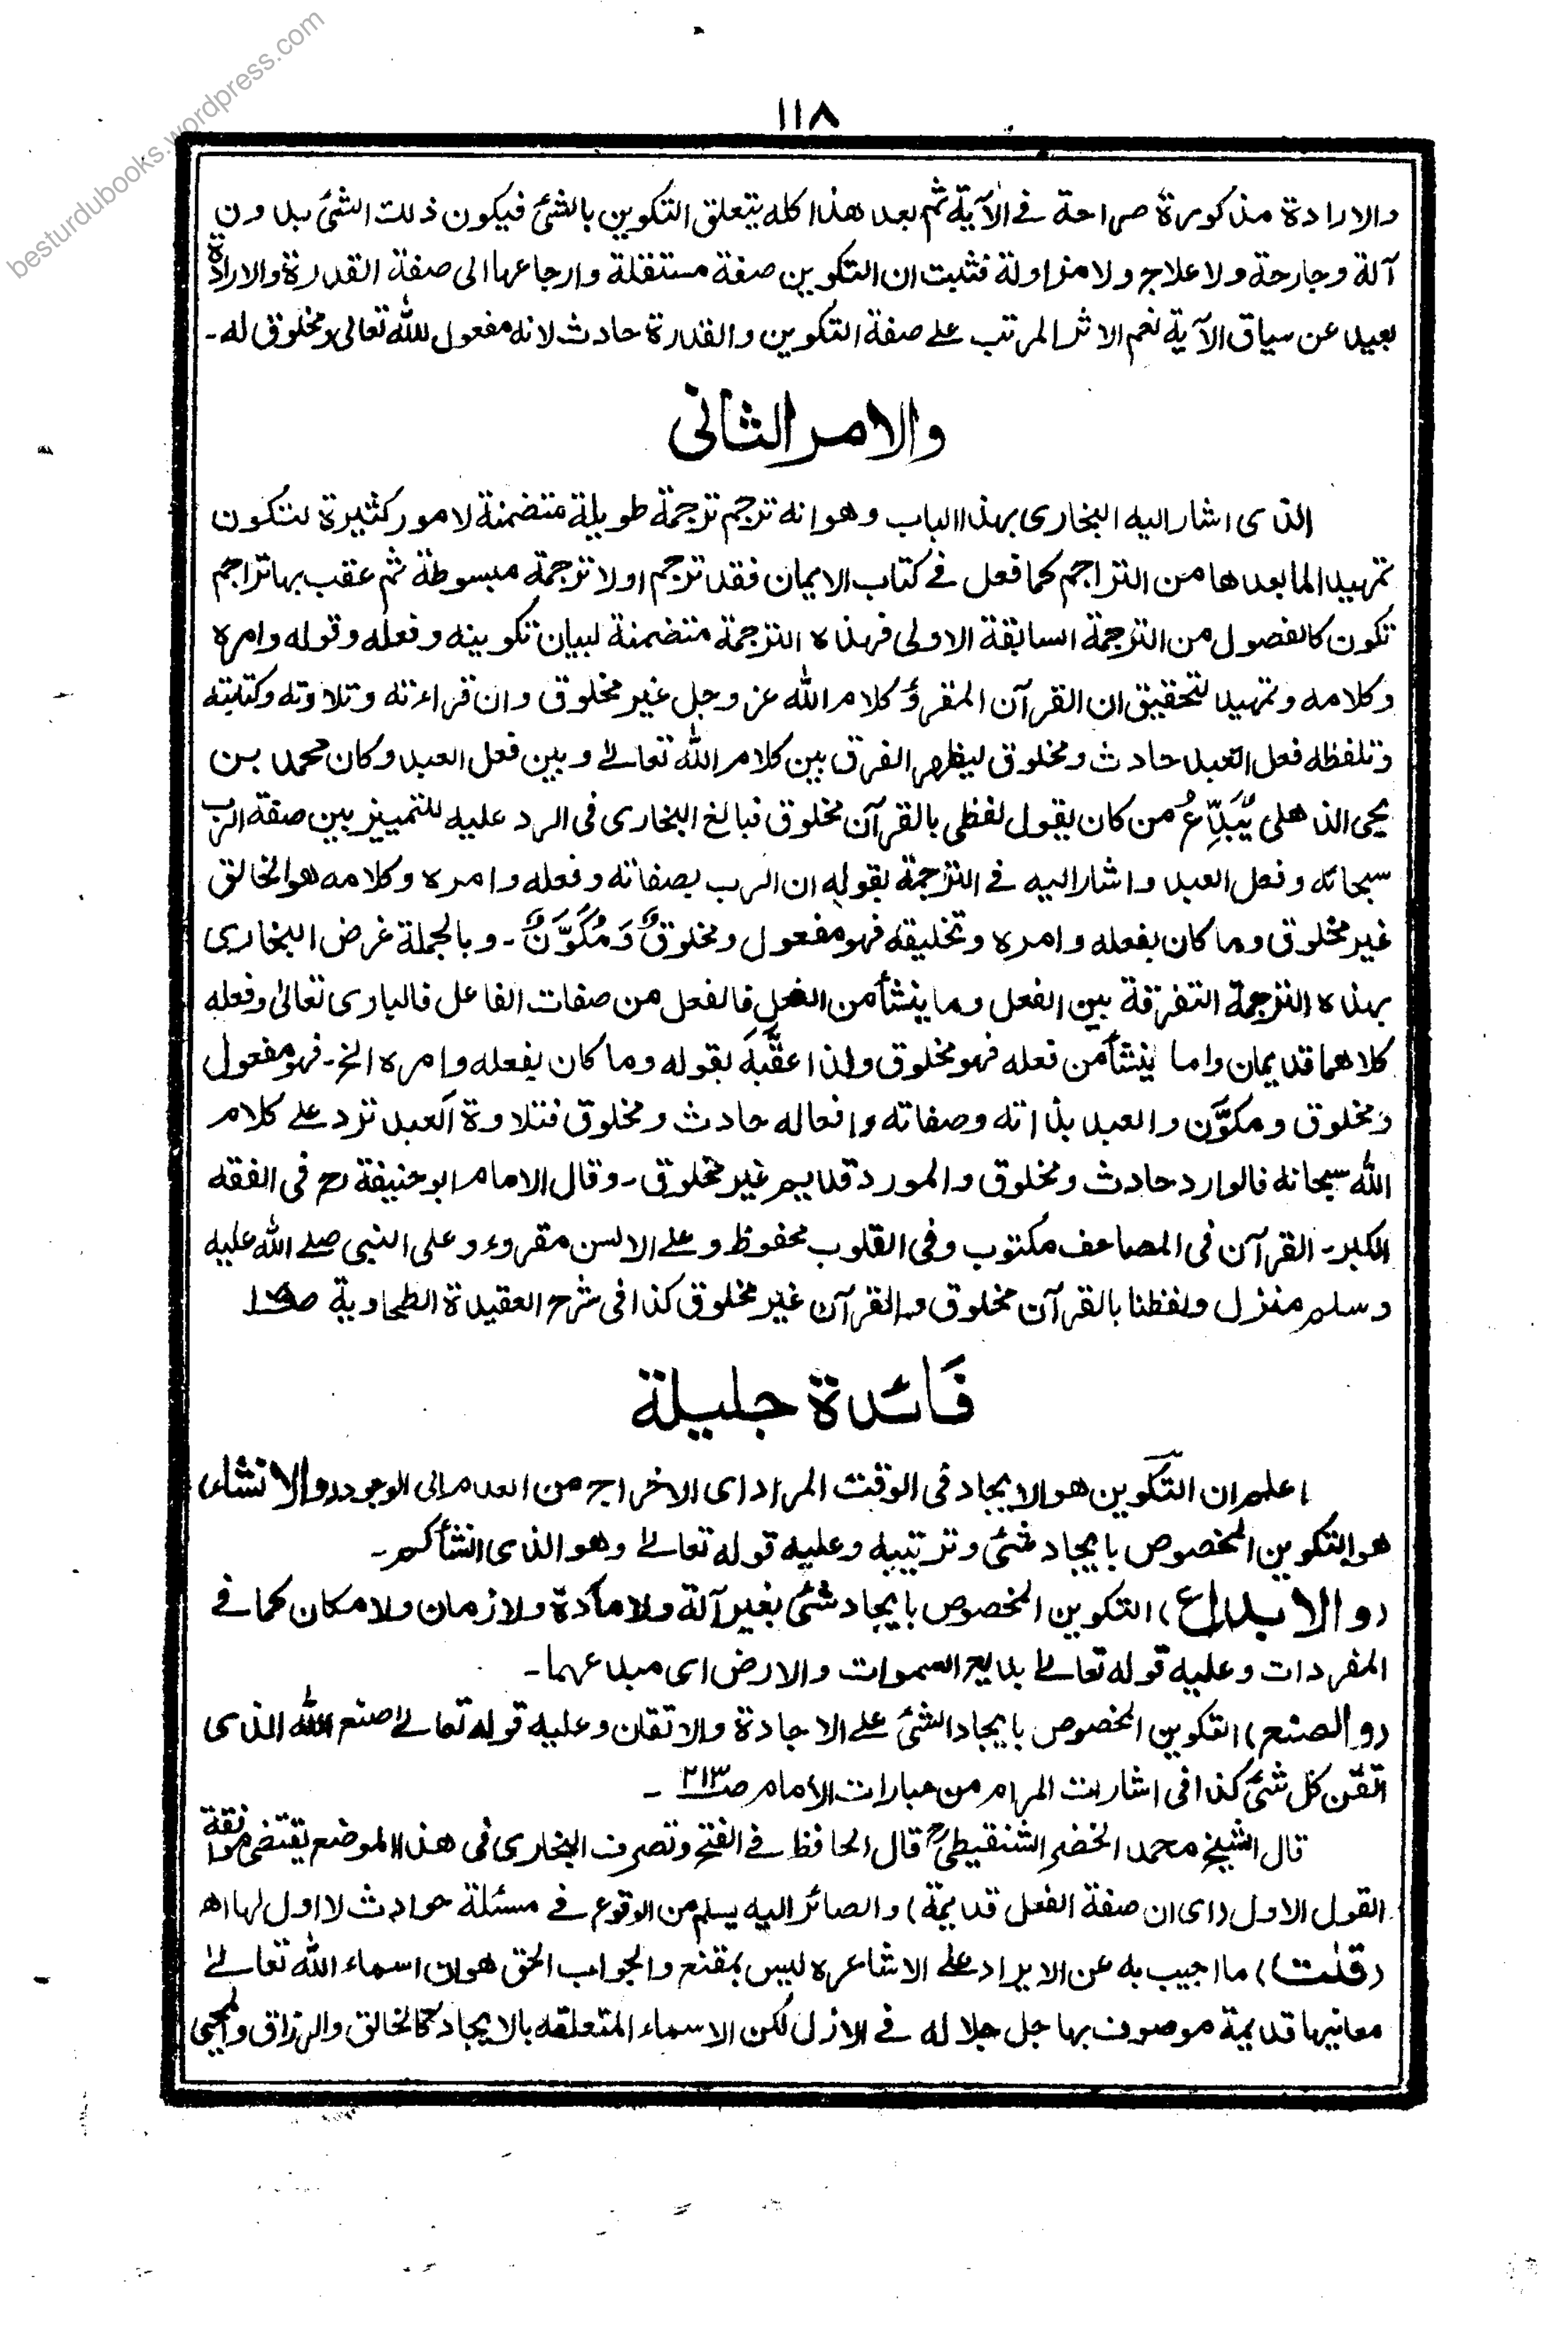 besturdubooks.wordpress.com
١١٨
والارادة مذكورة صراحة فى الآية ثم بعد هذا كله يتعلق التكوين بالشئ فيكون ذلك الشئ بدون
آلة وجارحة ولا علاج ولا مزاولة فثبت ان التكوين صفة مستقلة وارجاعها الى صفة القدرة والارادة
بعيد عن سياق الآية نعم الاثر المرتب على صفة التكوين والقدرة حادث لانه مفعول لله تعالى ومخلوق له۔
والامر الثانى
الذى اشار اليه البخارى بهذا الباب وهو انه ترجم ترجمة طويلة متضمنة لامور كثيرة لتكون
تمهيدا لما بعدها من التراجم كما فعل فى كتاب الايمان فقد ترجم اولا ترجمة مبسوطة ثم عقب بها تراجم
تكون كالفصول من الترجمة السابقة الاولى فهذه الترجمة متضمنة لبيان تكوينه وفعله وقوله وامره
وكلامه وتمهيد لتحقيق ان القرآن المقرؤ كلام الله عز وجل غير مخلوق وان قراءته وتلاوته وكتابته
وتلفظه فعل العبد حادث ومخلوق ليظهر الفرق بين كلام الله تعالى وبين فعل العبد وكان محمد بن
يحيى الذهلى يُبَدِّعُ من كان يقول لفظى بالقرآن مخلوق فبالغ البخارى فى الرد عليه للتمييز بين صفة الرب
سبحانه وفعل العبد واشار اليه فى الترجمة بقوله ان الرب بصفاته وفعله وامره وكلامه هو الخالق
غير مخلوق وما كان بفعله وامره وتخليقه فهو مفعول ومخلوقٌ وَمُكَوَّنٌ۔ وبالجملة غرض البخارى
بهذه الترجمة التفرقة بين الفعل وما ينشأ من الفعل فالفعل من صفات الفاعل فالبارى تعالىٰ وفعله
كلاهما قديمان واما ينشأ من فعله فهو مخلوق ولذا عقَّبَه بقوله وما كان بفعله وامره الخ۔ فهو مفعول
ومخلوق ومكوَّن والعبد بذاته وصفاته وافعاله حادث ومخلوق فتلاوة العبد ترد على كلام
الله سبحانه فالوارد حادث ومخلوق والمورد قديم غير مخلوق۔ وقال الامام ابو حنيفة رح فى الفقه
الاكبر۔ القرآن فى المصاحف مكتوب وفى القلوب محفوظ وعلى الالسن مقروء وعلى النبى صلى الله عليه
وسلم منزل ولفظنا بالقرآن مخلوق والقرآن غير مخلوق كذا فى شرح العقيدة الطحاوية
فَائدة جليلة
اعلم ان التكوين هو الايجاد فى الوقت المراد اى الاخراج من العدم الى الوجود والانشاء
هو التكوين المخصوص بايجاد شئى وترتيبه وعليه قوله تعالى وهو الذى انشأكم۔
(والابداع) التكوين المخصوص بايجاد شئى بغير آلة ولا مادة ولا زمان ولا مكان كما فى
المفردات وعليه قوله تعالى بديع السموات والارض اى مبدعهما۔
(والصنع) التكوين المخصوص بايجاد الشئى على الاجادة والاتقان وعليه قوله تعالى صنع الله الذى
اتقن كل شئى كذا فى اشارات المرام من عبارات الامام ص٢١٣ ۔
قال الشيخ محمد الخضر الشنقيطى رح قال الحافظ فى الفتح وتصرف البخارى فى هذا الموضع يقتضى موافقة
القول الاول (اى ان صفة الفعل قديمة) والصائر اليه يسلم من الوقوع فى مسئلة حوادث لا اول لها اهـ
(قلت) ما اجيب به عن الايراد على الاشاعره ليس بمقنع والجواب الحق هو ان اسماء الله تعالى
معانيها قديمة موصوف بها جل جلاله فى الازل لكن الاسماء المتعلقه بالايجاد كالخالق والرزاق والمحيى